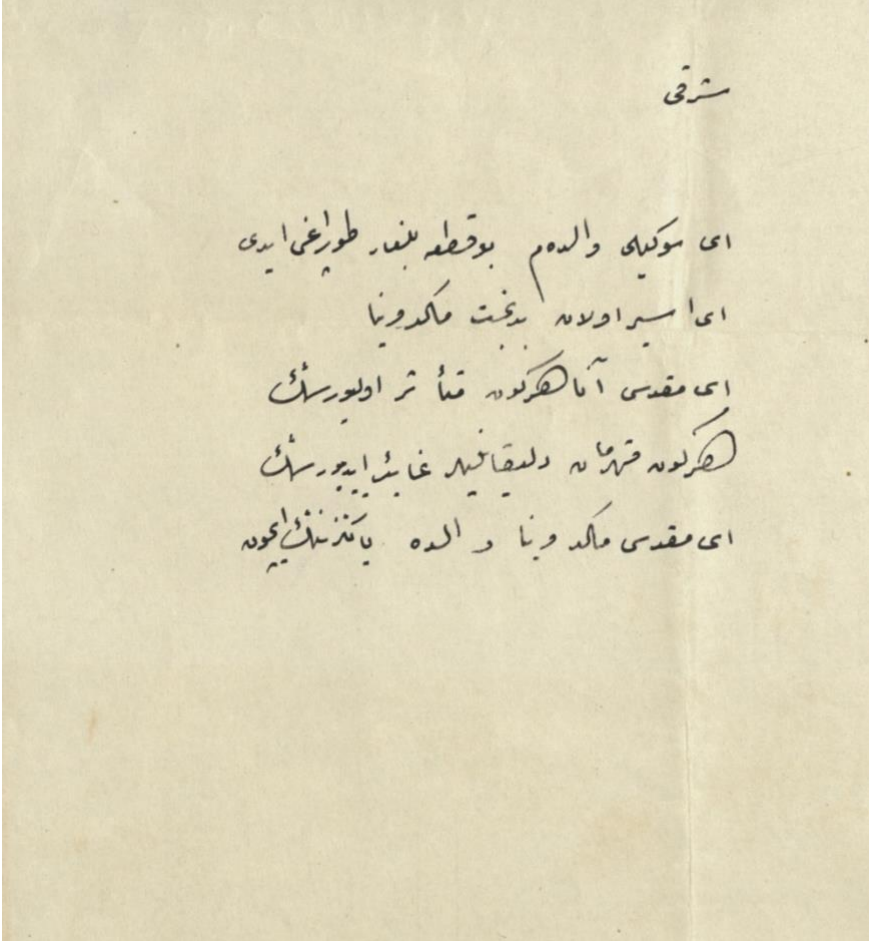 شرقی
ای سوكیلی والدەم بو قطعه بلغار طوپراغی ایدی
ای اسیر اولان بدبخت ماكدونیا
ای مقدس آنا هركون متأثر اولیورسڭ
هركون قهرمان دلیقانلیلر غایب ایدیورسڭ
ای مقدس ماكدونیا والده یالكز سنڭ ایچون